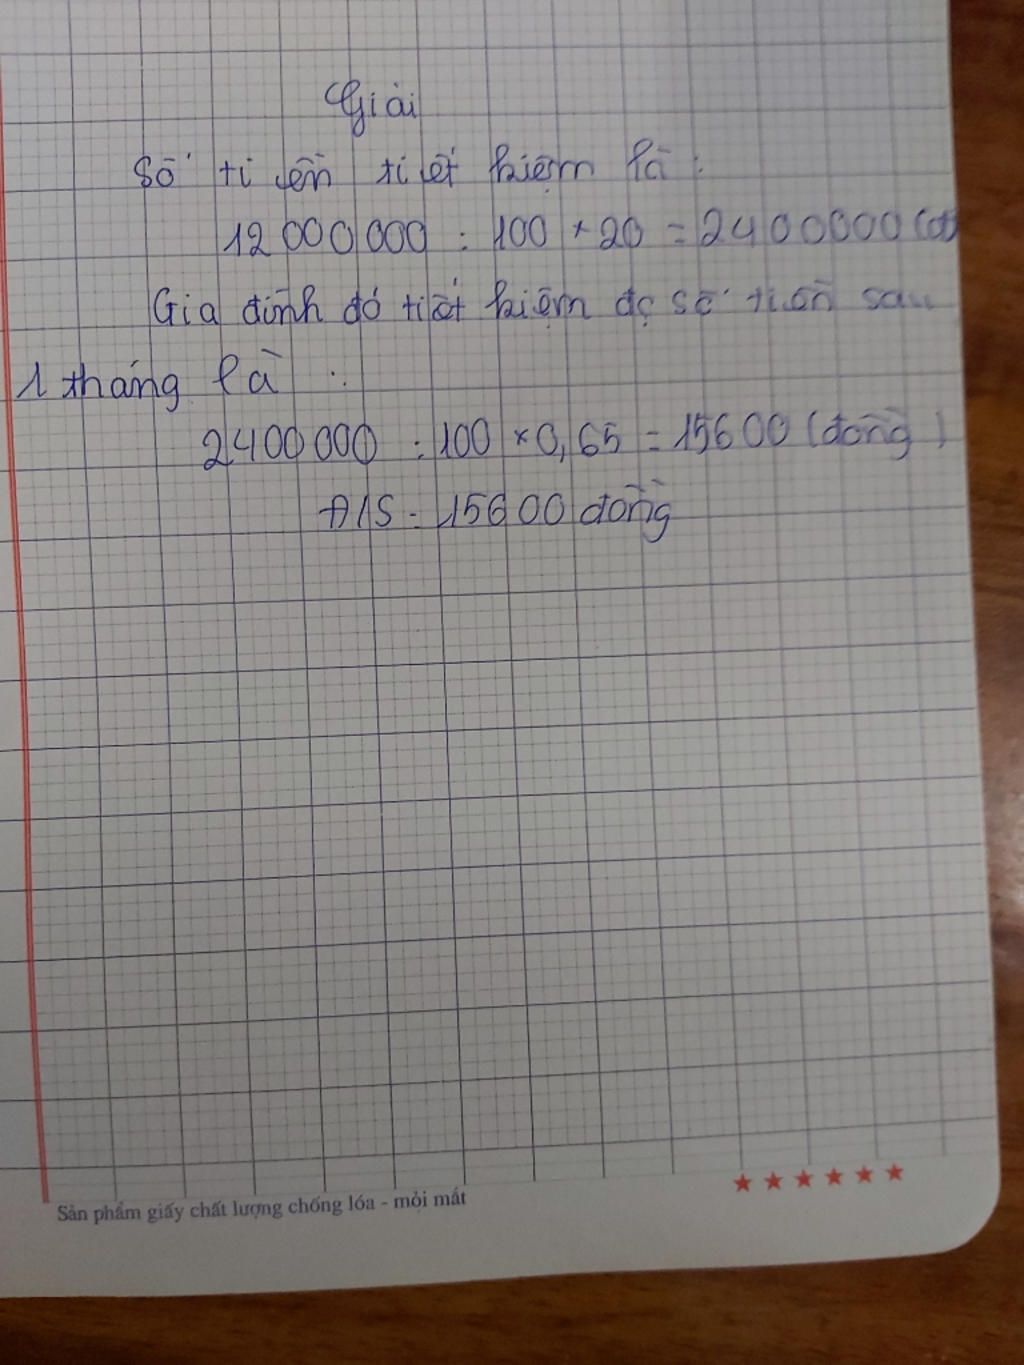 Giải
Số tiền tiết kiệm là :
12 000 000 : 100 × 20 = 2400000 (đ)
Gia đình đó tiết kiệm đc số tiền sau
1 tháng là :
2400 000 : 100 × 0,65 = 15600 (đồng)
Đ/S : 15600 đồng
Sản phẩm giấy chất lượng chống lóa - mỏi mắt